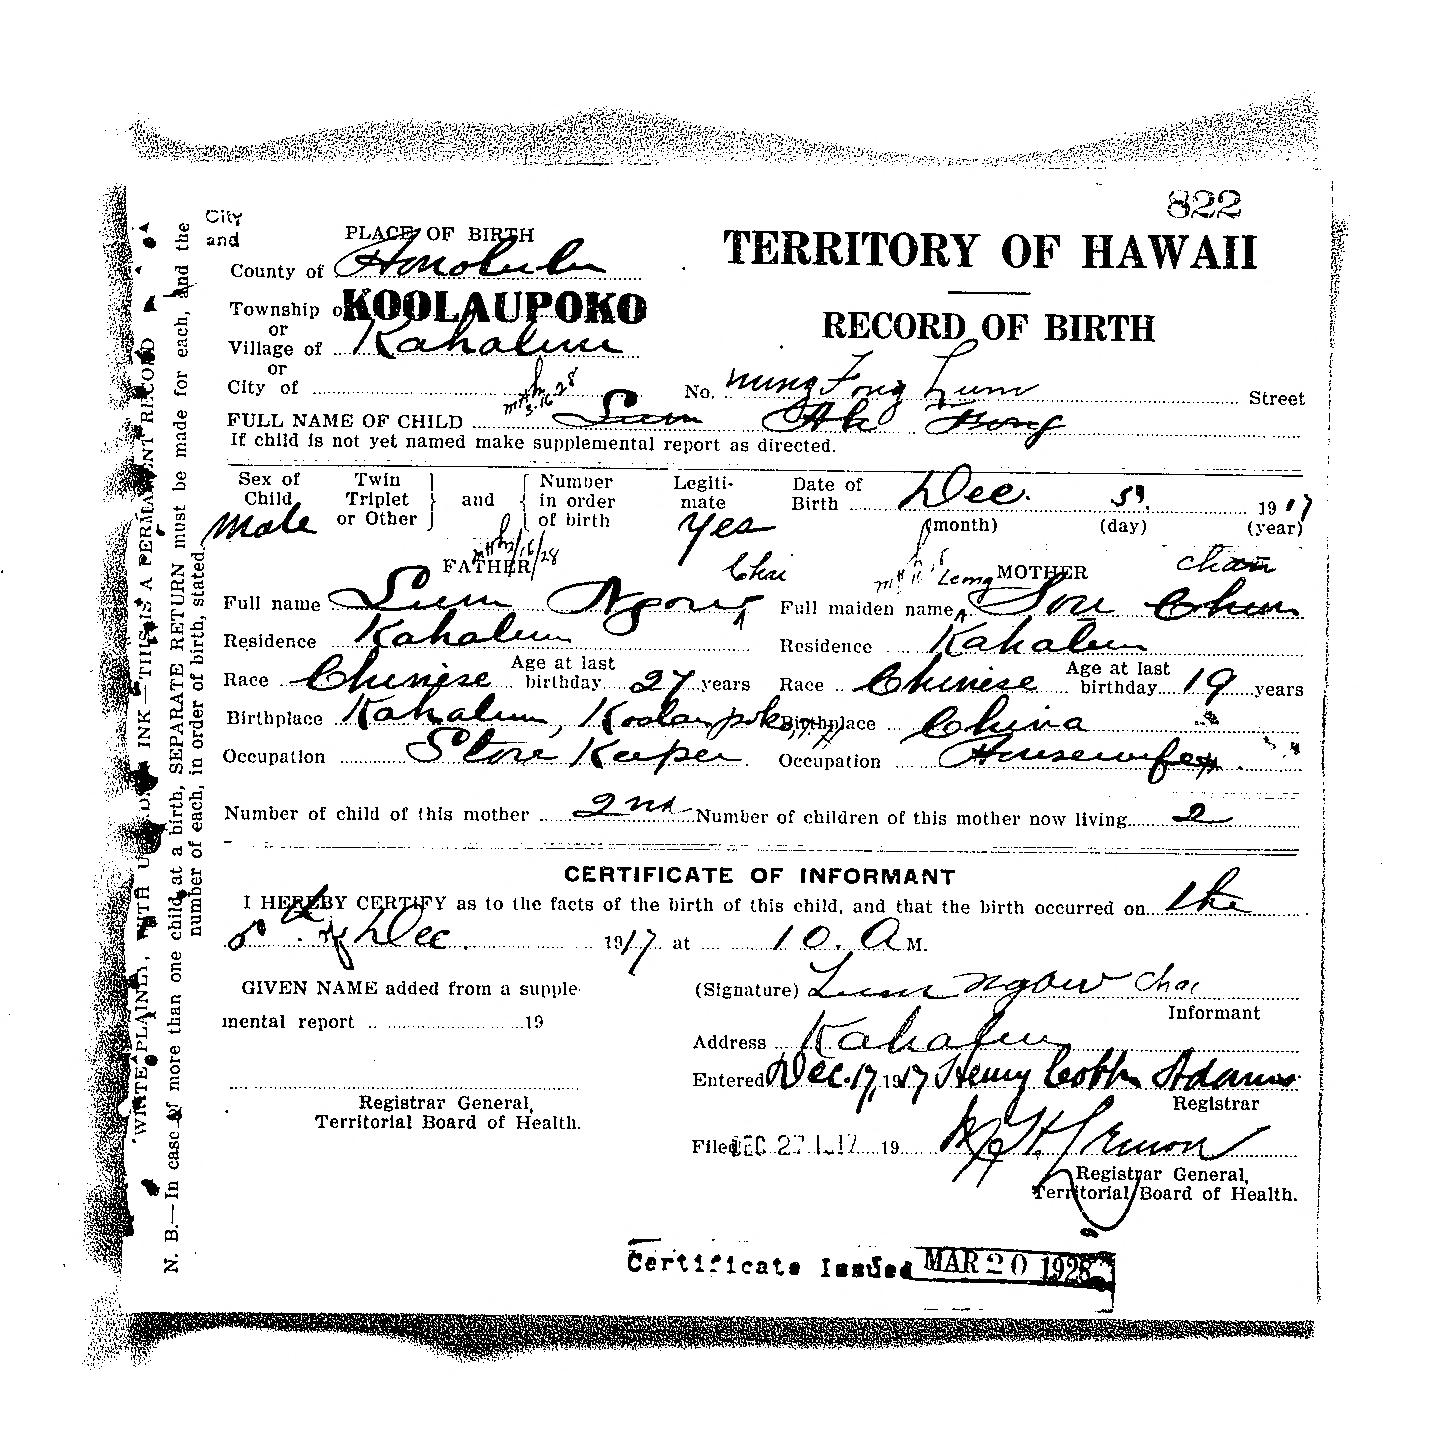 822
City
and
PLACE OF BIRTH
County of Honolulu
TERRITORY OF HAWAII
Township or KOOLAUPOKO
or
RECORD OF BIRTH
Village of Kahaluu
or
City of
No. nung Fong Lum Street
FULL NAME OF CHILD Lum Ah Fong
If child is not yet named make supplemental report as directed.
Sex of Child Male
Twin Triplet or Other } and { Number in order of birth
Legitimate Yes
Date of Birth Dec. 5 1917
(month) (day) (year)
FATHER Choi
Leong MOTHER Chan
Full name Lum Ngow
Full maiden name Sou Chun
Residence Kahaluu
Residence Kahaluu
Race Chinese Age at last birthday 27 years
Race Chinese Age at last birthday 19 years
Birthplace Kahaluu, Koolaupoko
Birthplace China
Occupation Store Keeper
Occupation Housewife
Number of child of this mother 2nd Number of children of this mother now living 2
CERTIFICATE OF INFORMANT
I HEREBY CERTIFY as to the facts of the birth of this child, and that the birth occurred on the
5th of Dec. 1917 at 10. A M.
GIVEN NAME added from a supple-
mental report 19
(Signature) Lum Ngow Choi
Informant
Address Kahaluu
Entered Dec. 17, 1917 Henry Cobb Adams
Registrar
Registrar General,
Territorial Board of Health.
Filed DEC 27 1917 19
Registrar General,
Territorial Board of Health.
Certificate Issued MAR 20 1928
WRITE PLAINLY, WITH INK—THIS IS A PERMANENT RECORD
N. B.—In case of more than one child at a birth, SEPARATE RETURN must be made for each, and the
number of each, in order of birth, stated.